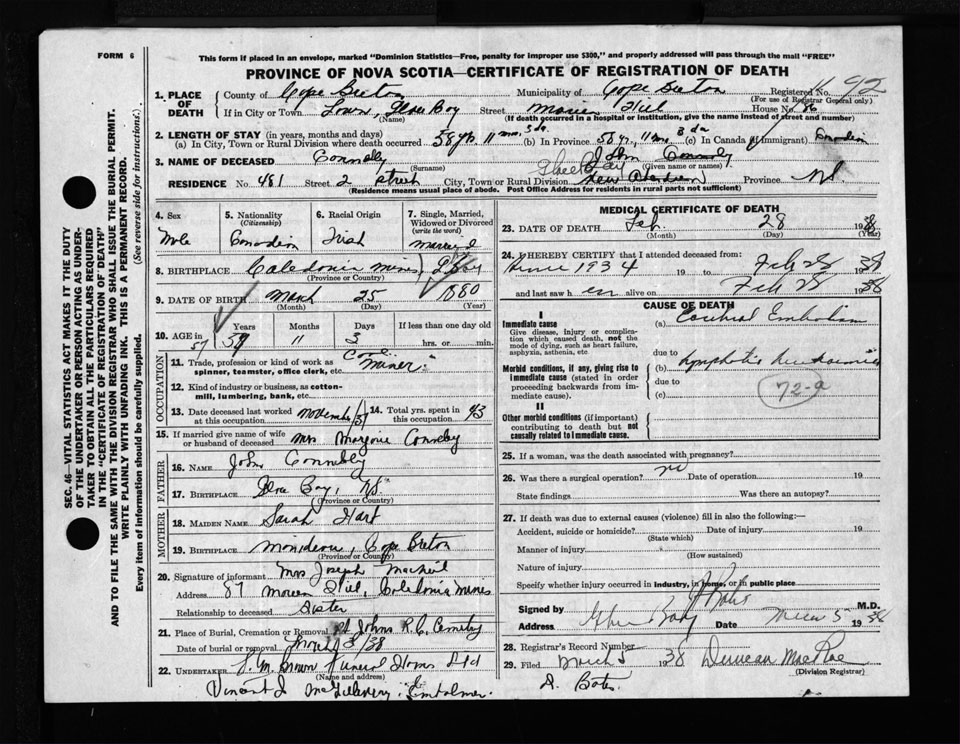 FORM 6
This form if placed in an envelope, marked "Dominion Statistics—Free, penalty for improper use $300," and properly addressed will pass through the mail "FREE"
PROVINCE OF NOVA SCOTIA—CERTIFICATE OF REGISTRATION OF DEATH
1. PLACE OF DEATH
County of Cape Breton Municipality of Cape Breton Registered No. 92
(For use of Registrar General only)
If in City or Town Town, Glace Bay Street Hill House No. 86
(Name) (If death occurred in a hospital or institution, give the name instead of street and number)
2. LENGTH OF STAY (in years, months and days)
(a) In City, Town or Rural Division where death occurred 58 yrs. 11 mos. 3 da. (b) In Province 58 yrs. 11 mos 3 da (c) In Canada (if immigrant) Canadian
3. NAME OF DECEASED Connolly John Connolly
(Surname) (Given name or names)
Glace Bay
RESIDENCE No. 481 Street 2 street City, Town or Rural Division New Aberdeen Province N.S.
(Residence means usual place of abode. Post Office Address for residents in rural parts not sufficient)
4. Sex Male
5. Nationality (Citizenship) Canadian
6. Racial Origin Irish
7. Single, Married, Widowed or Divorced (write the word) married
8. BIRTHPLACE Caledonia mines
(Province or Country)
9. DATE OF BIRTH March 25 1880
(Month) (Day) (Year)
10. AGE in Years Months Days If less than one day old
57 11 3 hrs. or min.
OCCUPATION
11. Trade, profession or kind of work as spinner, teamster, office clerk, etc. miner
12. Kind of industry or business, as cotton-mill, lumbering, bank, etc.
13. Date deceased last worked at this occupation November/37
14. Total yrs. spent in this occupation 43
15. If married give name of wife or husband of deceased Mrs Marjorie Connolly
FATHER
16. NAME John Connolly
17. BIRTHPLACE Glace Bay, N.S.
(Province or Country)
MOTHER
18. MAIDEN NAME Sarah Hart
19. BIRTHPLACE Cape Breton
(Province or Country)
20. Signature of informant Mrs Joseph MacNeil
Address 87 Hill, Caledonia Mines
Relationship to deceased Sister
21. Place of Burial, Cremation or Removal St Johns R.C. Cemetery
Date of burial or removal March 3/38
22. UNDERTAKER V. M. Brown Funeral Home Ltd
(Name and address)
Vincent J. McGillivray. Embalmer.
MEDICAL CERTIFICATE OF DEATH
23. DATE OF DEATH Feb. 28 1938
(Month) (Day) (Year)
24. I HEREBY CERTIFY that I attended deceased from:
Since 1934 19 to Feb 28 1938
and last saw him alive on Feb 28 1938
CAUSE OF DEATH
I
Immediate cause
Give disease, injury or complication which caused death, not the mode of dying, such as heart failure, asphyxia, asthenia, etc
(a) Cerebral Embolism
due to
Morbid conditions, if any, giving rise to immediate cause (stated in order proceeding backwards from immediate cause).
(b) Lymphatic Leukaemia
due to
(c)
72-a
II
Other morbid conditions (if important) contributing to death but not causally related to immediate cause.
25. If a woman, was the death associated with pregnancy?
26. Was there a surgical operation? no Date of operation 19
State findings Was there an autopsy?
27. If death was due to external causes (violence) fill in also the following:—
Accident, suicide or homicide? Date of injury 19
(State which)
Manner of injury
(How sustained)
Nature of injury
Specify whether injury occurred in industry, in home, or in public place
Signed by Bates M.D.
Address Glace Bay Date March 5 1938
28. Registrar's Record Number
29. Filed March 5 1938 Duncan MacRae
(Division Registrar)
D. Bates
SEC. 46—VITAL STATISTICS ACT MAKES IT THE DUTY OF THE UNDERTAKER OR PERSON ACTING AS UNDERTAKER TO OBTAIN ALL THE PARTICULARS REQUIRED IN THE "CERTIFICATE OF REGISTRATION OF DEATH"
AND TO FILE THE SAME WITH THE DIVISION REGISTRAR WHO SHALL ISSUE THE BURIAL PERMIT.
WRITE PLAINLY WITH UNFADING INK. THIS IS A PERMANENT RECORD.
Every item of information should be carefully supplied. (See reverse side for instructions.)